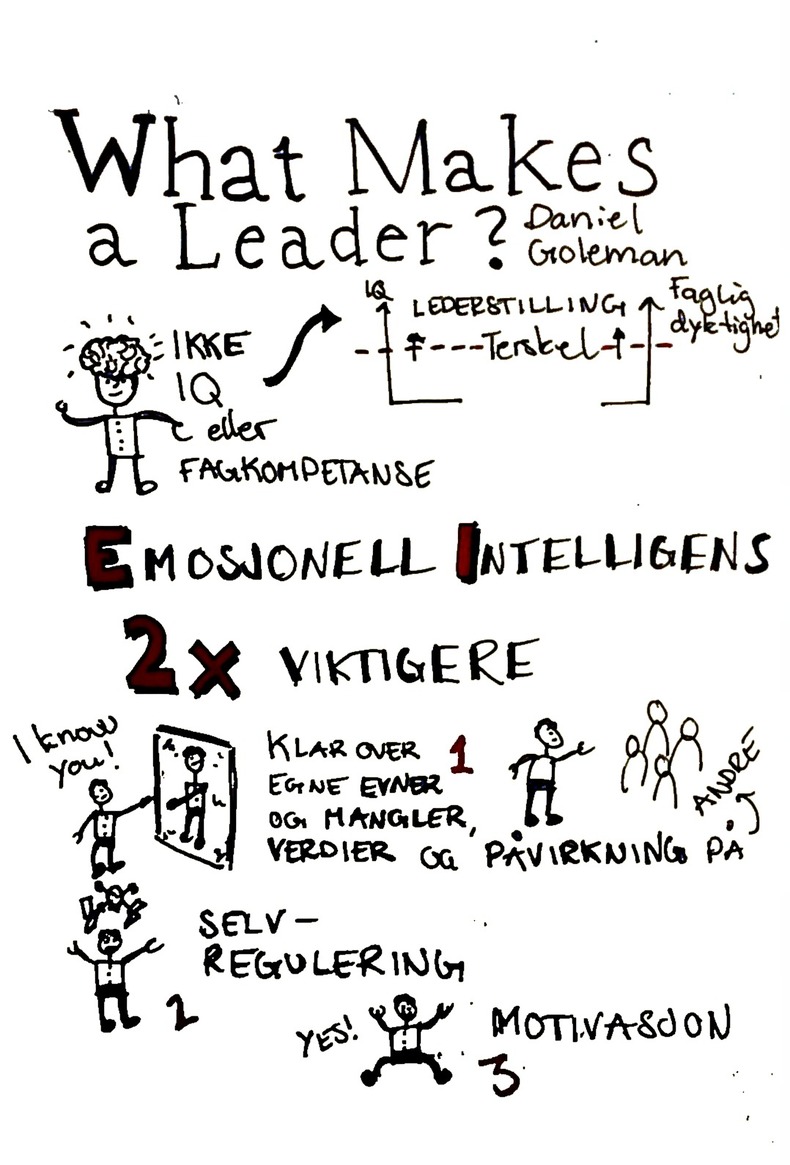 What Makes
a Leader?
Daniel
Goleman
IKKE
IQ
eller
FAGKOMPETANSE
IQ
LEDERSTILLING
Terskel
Faglig
dyktighet
EMOSJONELL INTELLIGENS
2x VIKTIGERE
I know
you!
KLAR OVER 1
EGNE EVNER
OG MANGLER,
VERDIER OG PÅVIRKNING PÅ
ANDRE
SELV-
REGULERING
2
YES!
MOTIVASJON
3